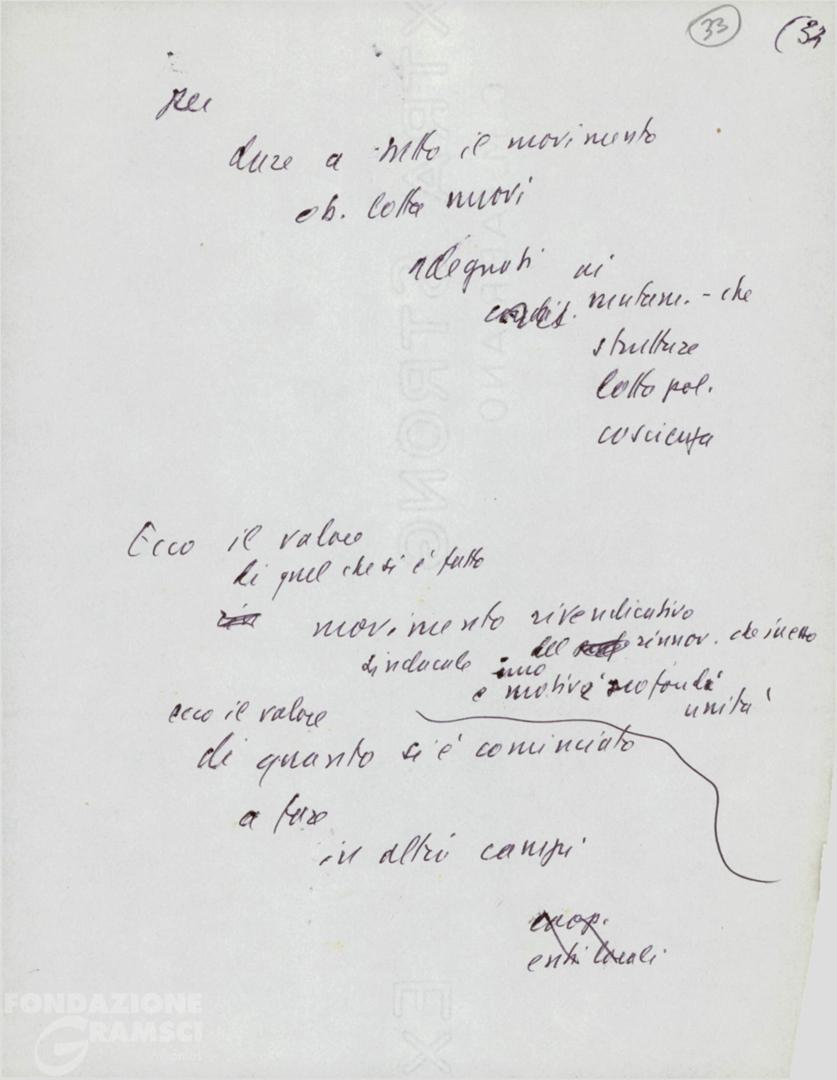 33 (32
per
dare a tutto il movimento
ob. lotta nuovi
adeguati ai
mutam. - che
strutture
lotta pol.
coscienza
Ecco il valore
di quel che si è fatto
in
movimento rivendicativo
del rinnov. che in esso
sindacale
e motivi profondi
unità
ecco il valore
di quanto si è cominciato
a fare
in altri campi
coop.
enti locali
FONDAZIONE
GRAMSCI
EXTRA STRONG
EX